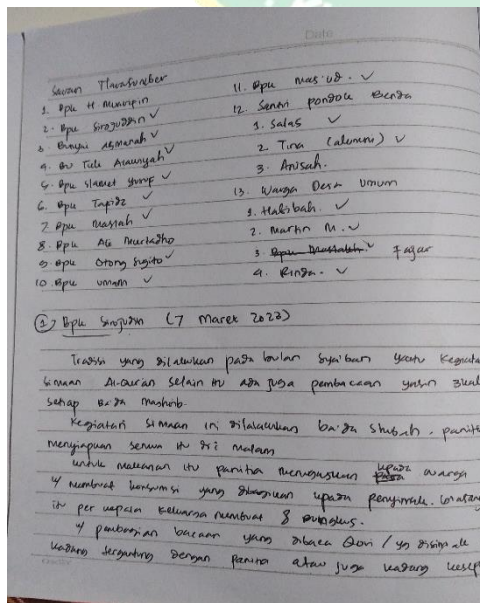 Date
Saran Narasumber
1. Bpk H Munirpin
2. Bpk Sirojuddin ✓
3. Bunyai Asmanah ✓
4. Bu Titik ✓
5. Bpk Slamet Yusuf ✓
6. Bpk Tapidz ✓
7. Bpk Masrah ✓
8. Bpk Ali Murtadho
9. Bpk Otong Sugito ✓
10. Bpk Umam ✓
11. Bpk Mas'ud. ✓
12. Santri pondok Benda
1. Salas ✓
2. Tina (alumni) ✓
3. Anisah.
13. Warga Desa Umum
1. Habibah. ✓
2. Martin M. ✓
3. Fajar
4. Rinda. ✓
① Bpk Sirojudin (7 Maret 2023)
Tradisi yang dilakukan pada bulan Sya'ban yaitu Kegiatan
Simaan Al-Qur'an selain itu ada juga pembacaan yasin
setiap Ba'da maghrib.
Kegiatan simaan ini dilaksanakan ba'da shubuh. panitia
menyiapkan semua itu dri malam
untuk makanan itu panitia menugaskan kepada warga
u/ membuat konsumsi yang dibagikan kepada penyimak.
itu per kepala keluarga membuat 8 bungkus.
u/ pembagian bacaan yang dibaca Qori / yg disimak
kadang tergantung dengan panitia atau juga kadang